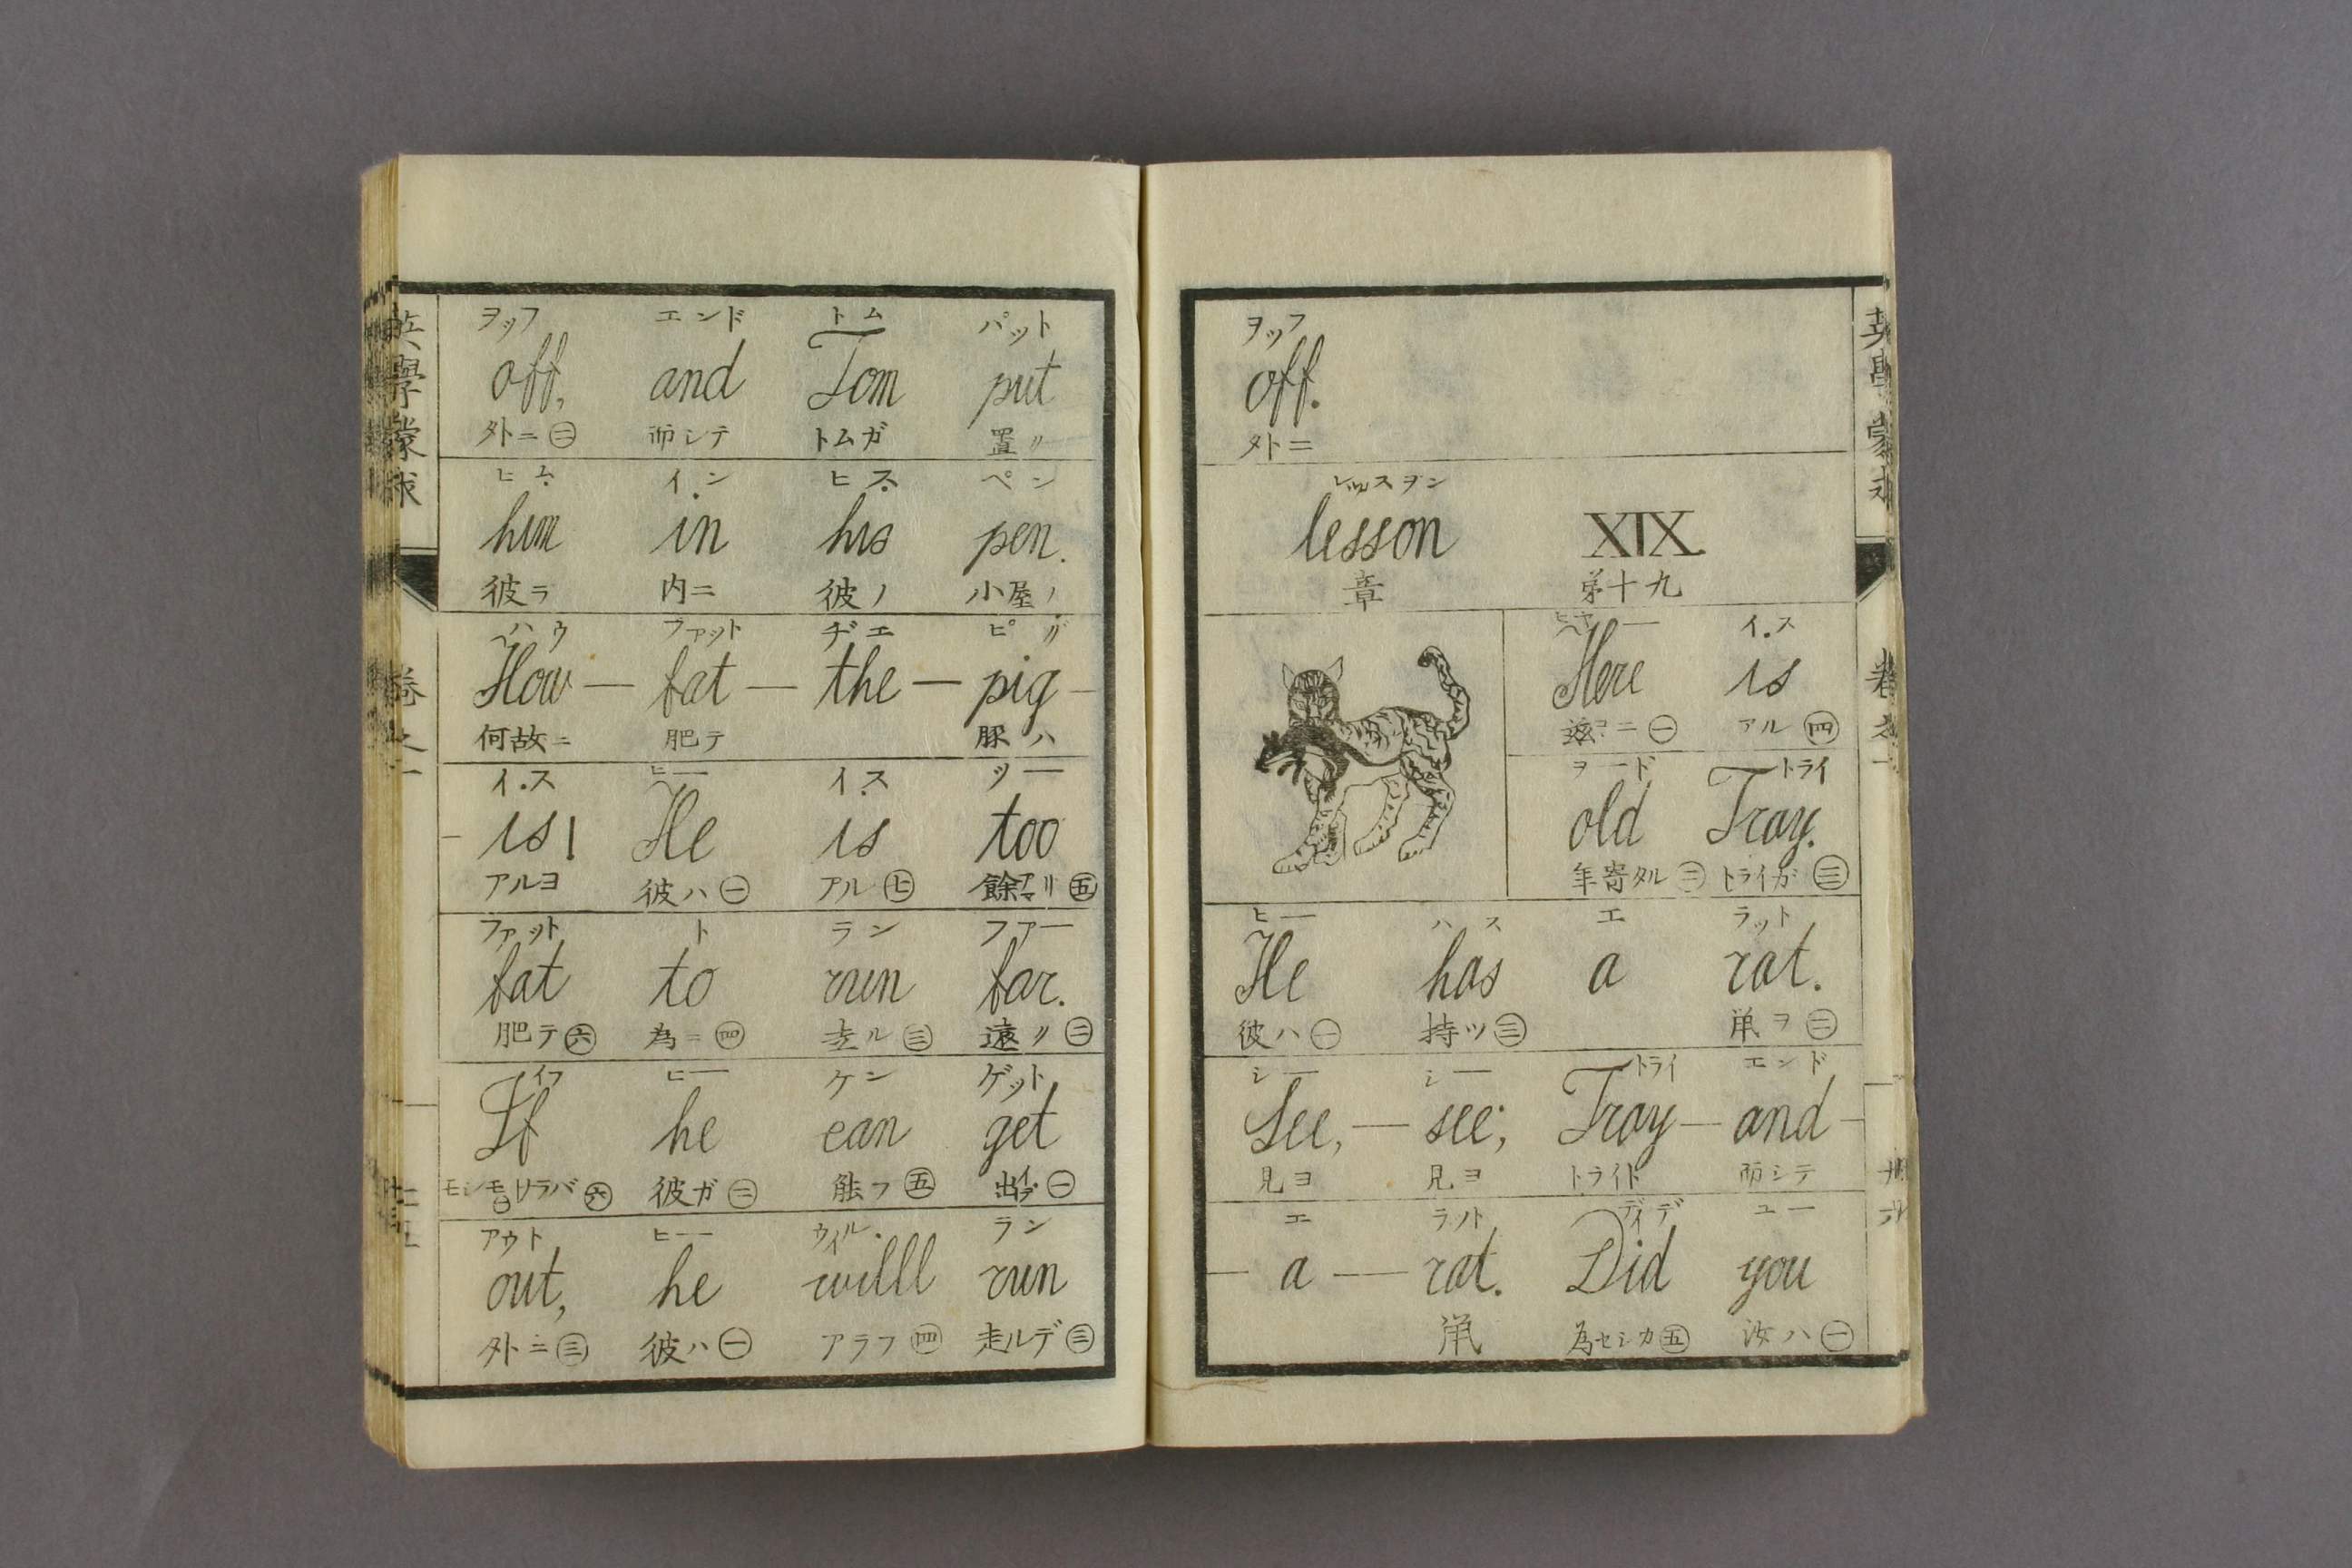 ヲッフ エンド トム パット
off, and Tom put
外ニ㊁ 而シテ トムガ 置〃
ヒム イン ヒス ペン
him in his pen.
彼ヲ 内ニ 彼ノ 小屋ノ
ハウ ファット ヂエ ピグ
How — fat — the — pig —
何故ニ 肥テ 豚ハ
イス ヒー イス ツー
— is! He is too
アルヨ 彼ハ㊀ アル㊆ 餘アマリ㊄
ファット ト ラン ファー
fat to run far.
肥テ㊅ 為ニ㊃ 走ル㊂ 遠ク㊁
イフ ヒー ケン ゲット
If he can get
彼ガ㊁ 能フ㊄ 出イデ㊀
アウト ヒー ウイル ラン
out, he willl run
外ニ㊂ 彼ハ㊀ アラフ㊃ 走ルデ㊂
英學蒙求 卷之一
ヲッフ
off.
外ニ
レッスヲン
lesson XIX.
章 第十九
ヒヤー イス
Here is
㊀ アル㊃
ヲード トライ
old Tray.
年寄タル㊁ トライガ㊂
ヒー ハス エ ラット
He has a rat.
彼ハ㊀ 持ツ㊂ 鼡ヲ㊁
シー シー トライ エンド
See, — see; Tray — and —
見ヨ 見ヨ トライト 而シテ
エ ラット デイデ ユー
— a — rat. Did you
鼡 為セシカ㊄ 汝ハ㊀